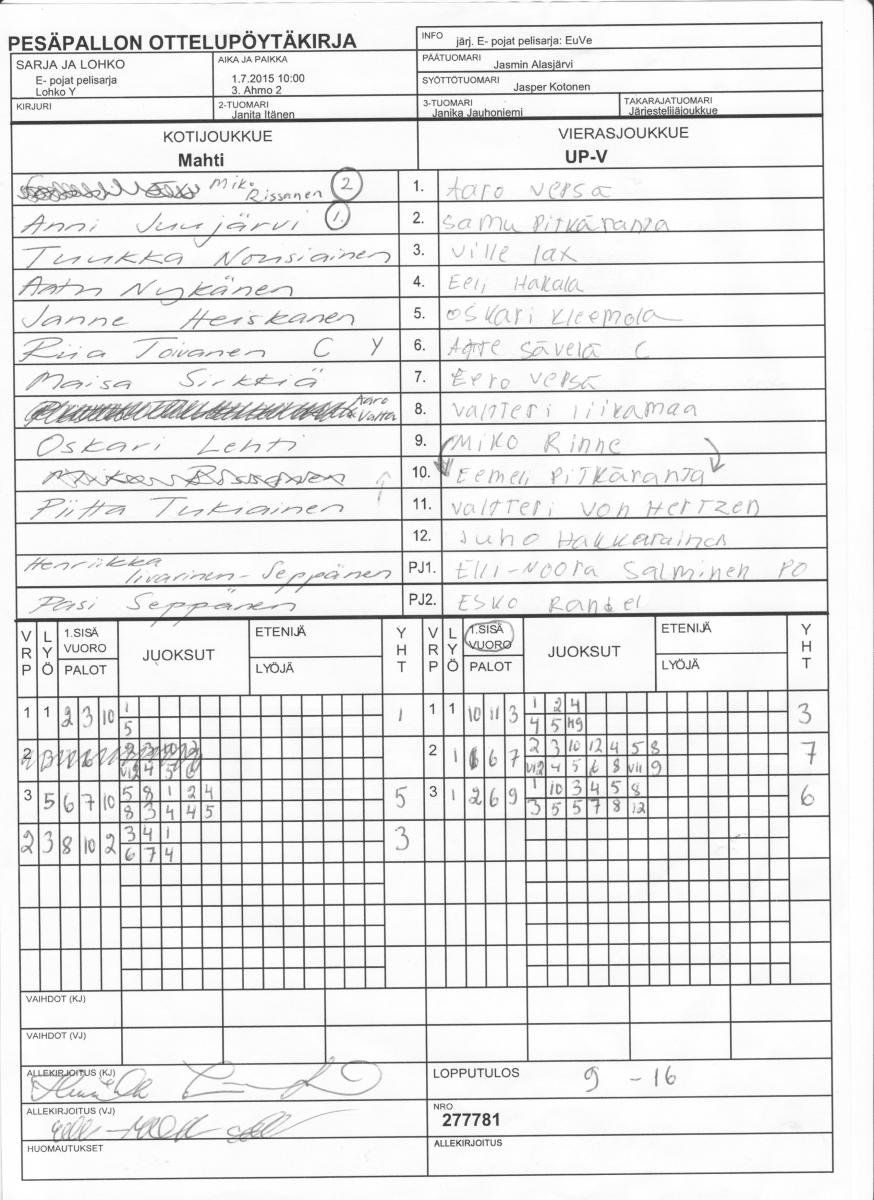 PESÄPALLON OTTELUPÖYTÄKIRJA
INFO järj. E- pojat pelisarja: EuVe
SARJA JA LOHKO
E- pojat pelisarja
Lohko Y
AIKA JA PAIKKA
1.7.2015 10:00
3. Ahmo 2
PÄÄTUOMARI Jasmin Alasjärvi
SYÖTTÖTUOMARI Jasper Kotonen
KIRJURI
2-TUOMARI Janita Itänen
3-TUOMARI Janika Jauhoniemi
TAKARAJATUOMARI Järjestelijäjoukkue
KOTIJOUKKUE
Mahti
VIERASJOUKKUE
UP-V
Miko Rissanen 2 1. Aaro versa
Anni Juujärvi 1. 2. Samu Pitkäranta
Tuukka Nousiainen 3. ville lax
Nykänen 4. Eeli Hakala
Janne Heiskanen 5. Oskari Kleemola
Riia Toivanen C Y 6. Sävelä C
Maisa Sirkkiä 7. Eero versa
Aaro Valta 8. valtteri liikamaa
Oskari Lehti 9. Miko Rinne
10. Eemeli Pitkäranta
Piitta Tukiainen 11. valtteri von Hertzen
12. Juho Hakkarainen
Henriikka Iivarinen-Seppänen PJ1. Elli-Noora Salminen PO
Pasi Seppänen PJ2. Esko Randel
VRP LYÖ 1.SISÄ VUORO PALOT JUOKSUT ETENIJÄ LYÖJÄ YHT VRP LYÖ 1.SISÄ VUORO PALOT JUOKSUT ETENIJÄ LYÖJÄ YHT
1 1 2 3 10 1 1 1 1 10 11 3 1 2 4 3
5 4 5 49
2 2 3 10 12 2 1 6 7 2 3 10 12 4 5 8 7
vi2 4 5 6 vi2 4 5 6 8 vii 9
3 5 6 7 10 5 8 1 2 4 5 3 1 2 6 9 1 10 3 4 5 8 6
8 3 4 4 5 3 5 5 7 8 12
2 3 8 10 2 3 4 1 3
6 7 4
VAIHDOT (KJ)
VAIHDOT (VJ)
ALLEKIRJOITUS (KJ)
LOPPUTULOS 9 - 16
ALLEKIRJOITUS (VJ)
NRO
277781
HUOMAUTUKSET
ALLEKIRJOITUS